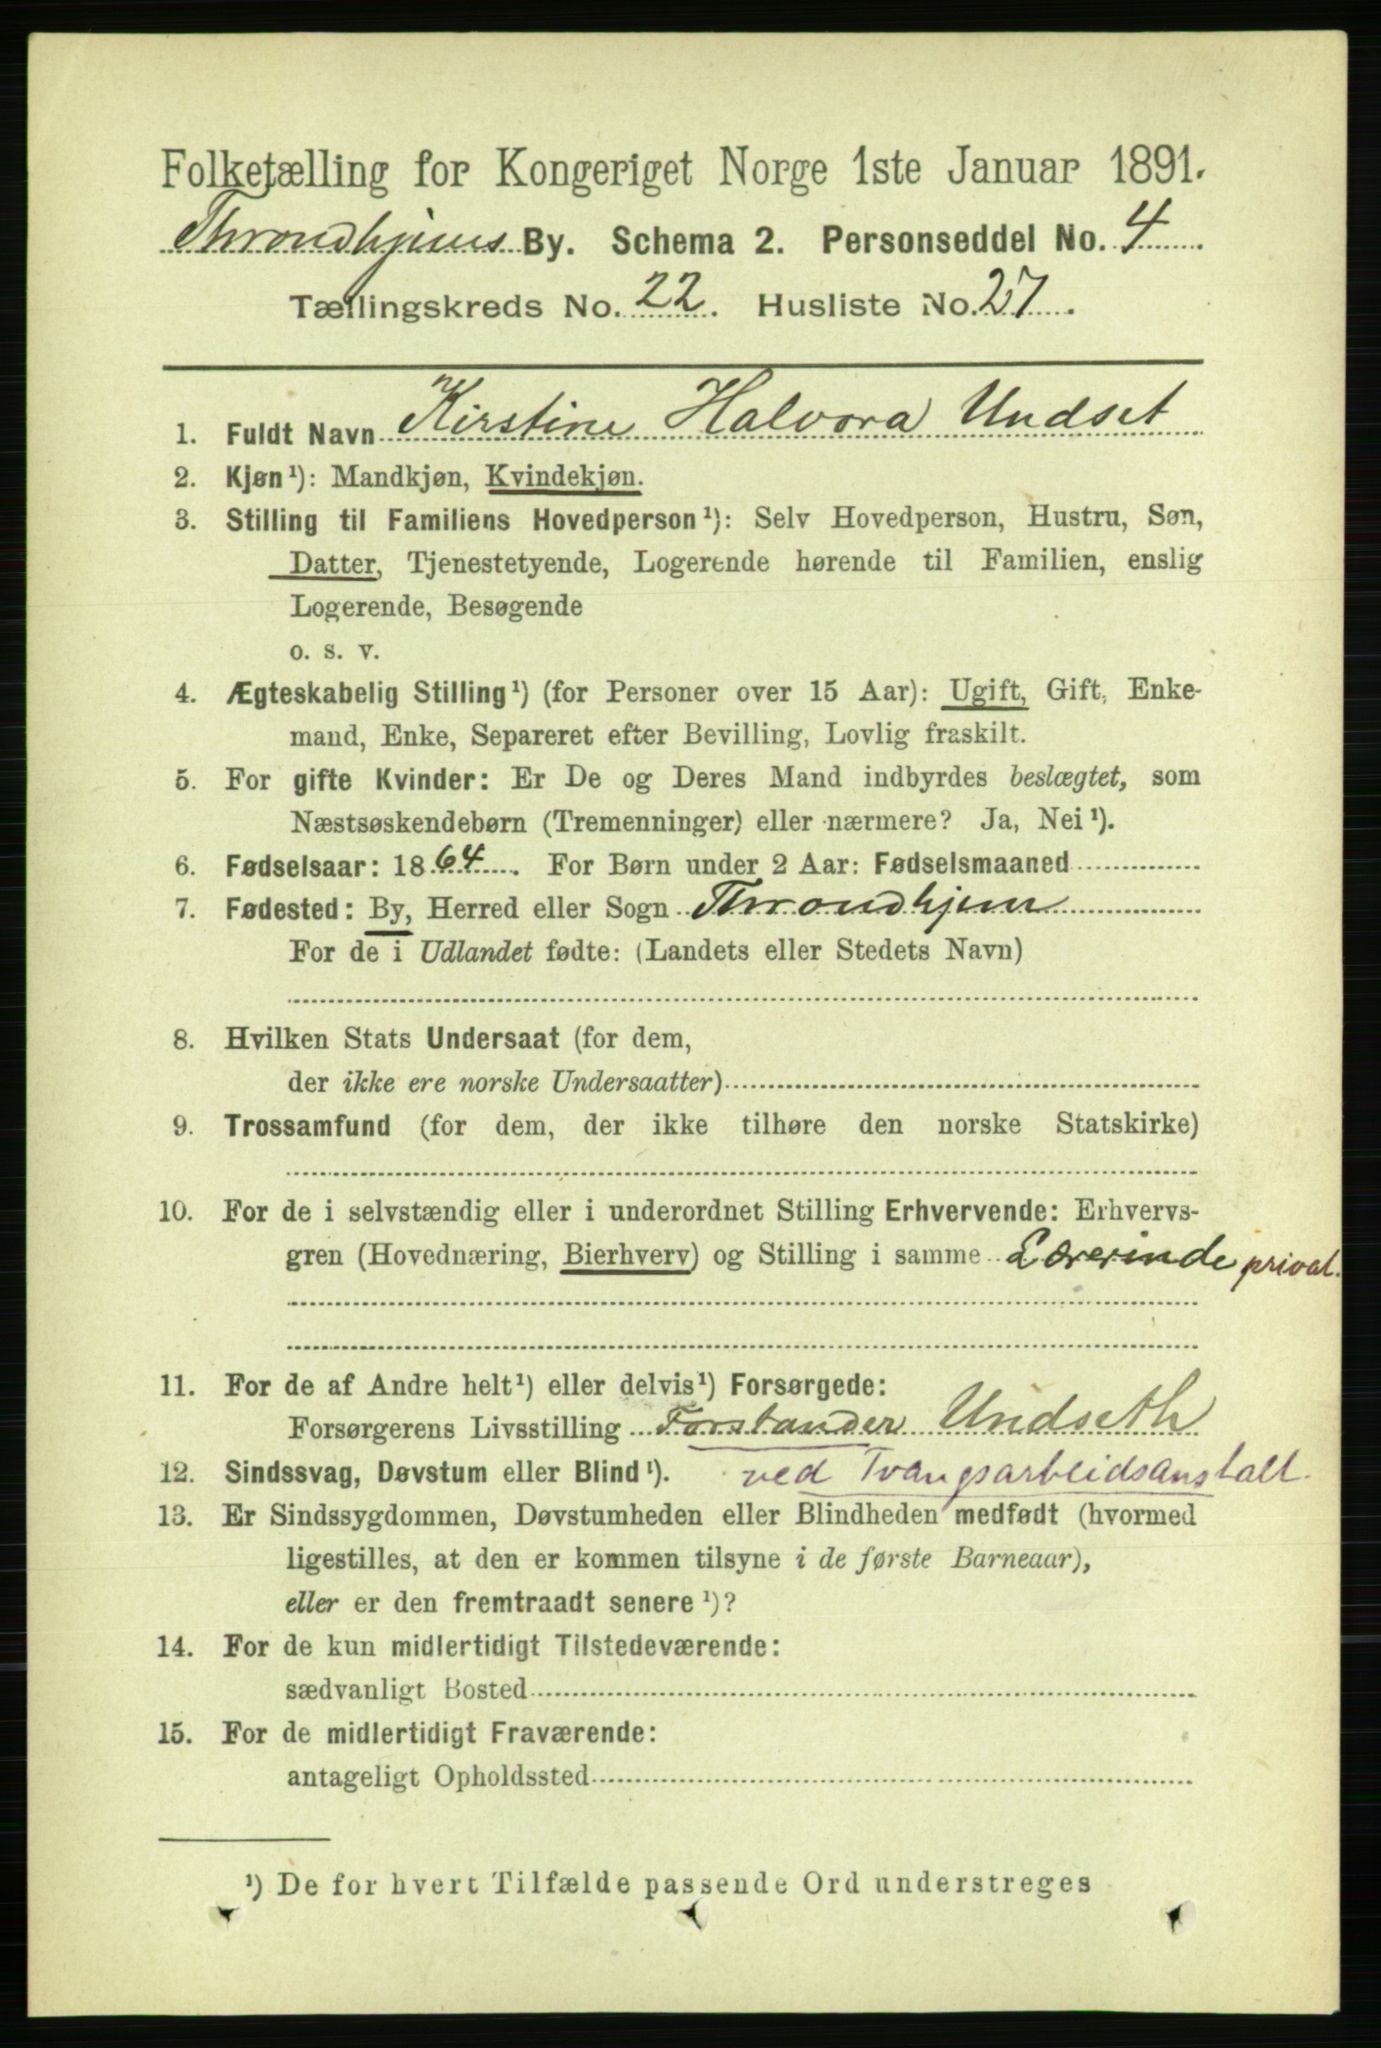 Folketælling for Kongeriget Norge 1ste Januar 1891.
Throndhjems By. Schema 2. Personseddel No. 4
Tællingskreds No. 22. Husliste No. 27.
1. Fuldt Navn Kirstine Halvora Undset
2. Kjøn¹): Mandkjøn, Kvindekjøn.
3. Stilling til Familiens Hovedperson¹): Selv Hovedperson, Hustru, Søn,
Datter, Tjenestetyende, Logerende hørende til Familien, enslig
Logerende, Besøgende
o. s. v.
4. Ægteskabelig Stilling¹) (for Personer over 15 Aar): Ugift, Gift, Enke-
mand, Enke, Separeret efter Bevilling, Lovlig fraskilt.
5. For gifte Kvinder: Er De og Deres Mand indbyrdes beslægtet, som
Næstsøskendebørn (Tremenninger) eller nærmere? Ja, Nei¹).
6. Fødselsaar: 1864. For Børn under 2 Aar: Fødselsmaaned
7. Fødested: By, Herred eller Sogn Throndhjem
For de i Udlandet fødte: (Landets eller Stedets Navn)
8. Hvilken Stats Undersaat (for dem,
der ikke ere norske Undersaatter)
9. Trossamfund (for dem, der ikke tilhøre den norske Statskirke)
10. For de i selvstændig eller i underordnet Stilling Erhvervende: Erhvervs-
gren (Hovednæring, Bierhverv) og Stilling i samme Lærerinde privat.
11. For de af Andre helt¹) eller delvis¹) Forsørgede:
Forsørgerens Livsstilling Forstander Undseth
12. Sindssvag, Døvstum eller Blind¹). ved Tvangsarbeidsanstalt.
13. Er Sindssygdommen, Døvstumheden eller Blindheden medfødt (hvormed
ligestilles, at den er kommen tilsyne i de første Barneaar),
eller er den fremtraadt senere¹)?
14. For de kun midlertidigt Tilstedeværende:
sædvanligt Bosted
15. For de midlertidigt Fraværende:
antageligt Opholdssted
¹) De for hvert Tilfælde passende Ord understreges